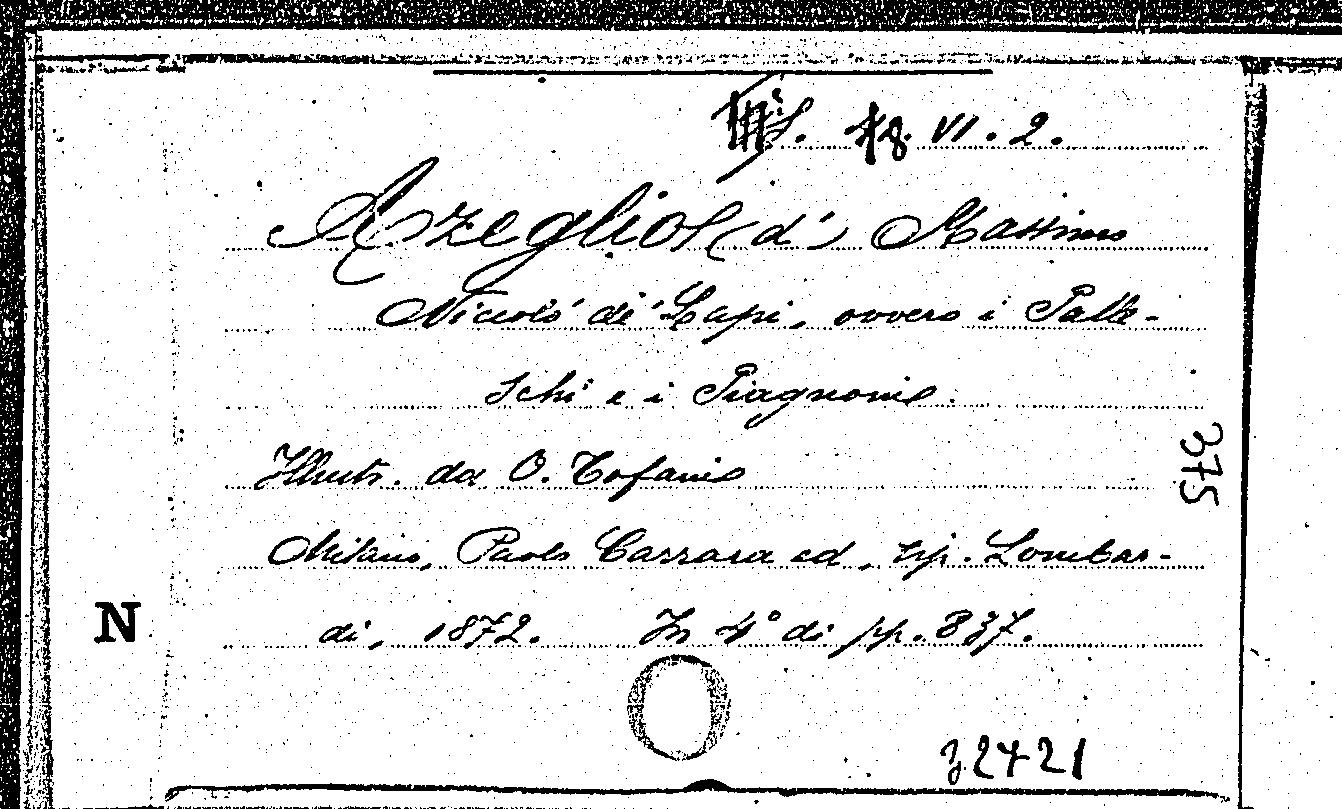 S. 48. VI. 2.
Azeglio (d') Massimo
Niccolò de' Lapi, ovvero i Palle-
schi e i Piagnoni.
Illustr. da O. Tofani
Milano, Paolo Carrara ed., tip. Lombar-
di, 1872. In 4° di pp. 837.
375
N
32421